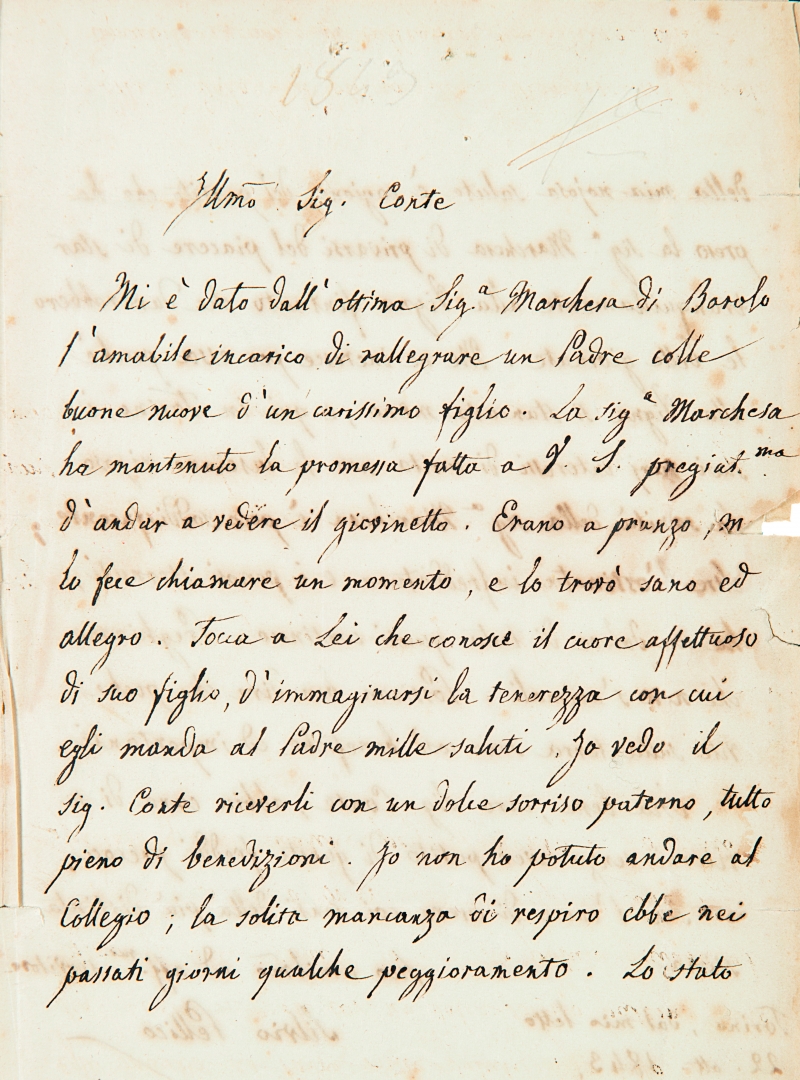 1843
Illmo Sig. Conte
Mi è dato dall'ottima Sig.a Marchesa di Barolo
l'amabile incarico di rallegrare un Padre colle
buone nuove d'un carissimo figlio. La Sig.a Marchesa
ha mantenuto la promessa fatta a V. S. pregiat.ma
d'andar a vedere il giovinetto. Erano a pranzo, m
lo fece chiamare un momento, e lo trovò sano ed
allegro. Tocca a Lei che conosce il cuore affettuoso
di suo figlio, d'immaginarsi la tenerezza con cui
egli manda al Padre mille saluti. Io vedo il
Sig. Conte riceverli con un dolce sorriso paterno, tutto
pieno di benedizioni. Io non ho potuto andare al
Collegio; la solita mancanza di respiro ebbe nei
passati giorni qualche peggioramento. Lo stato